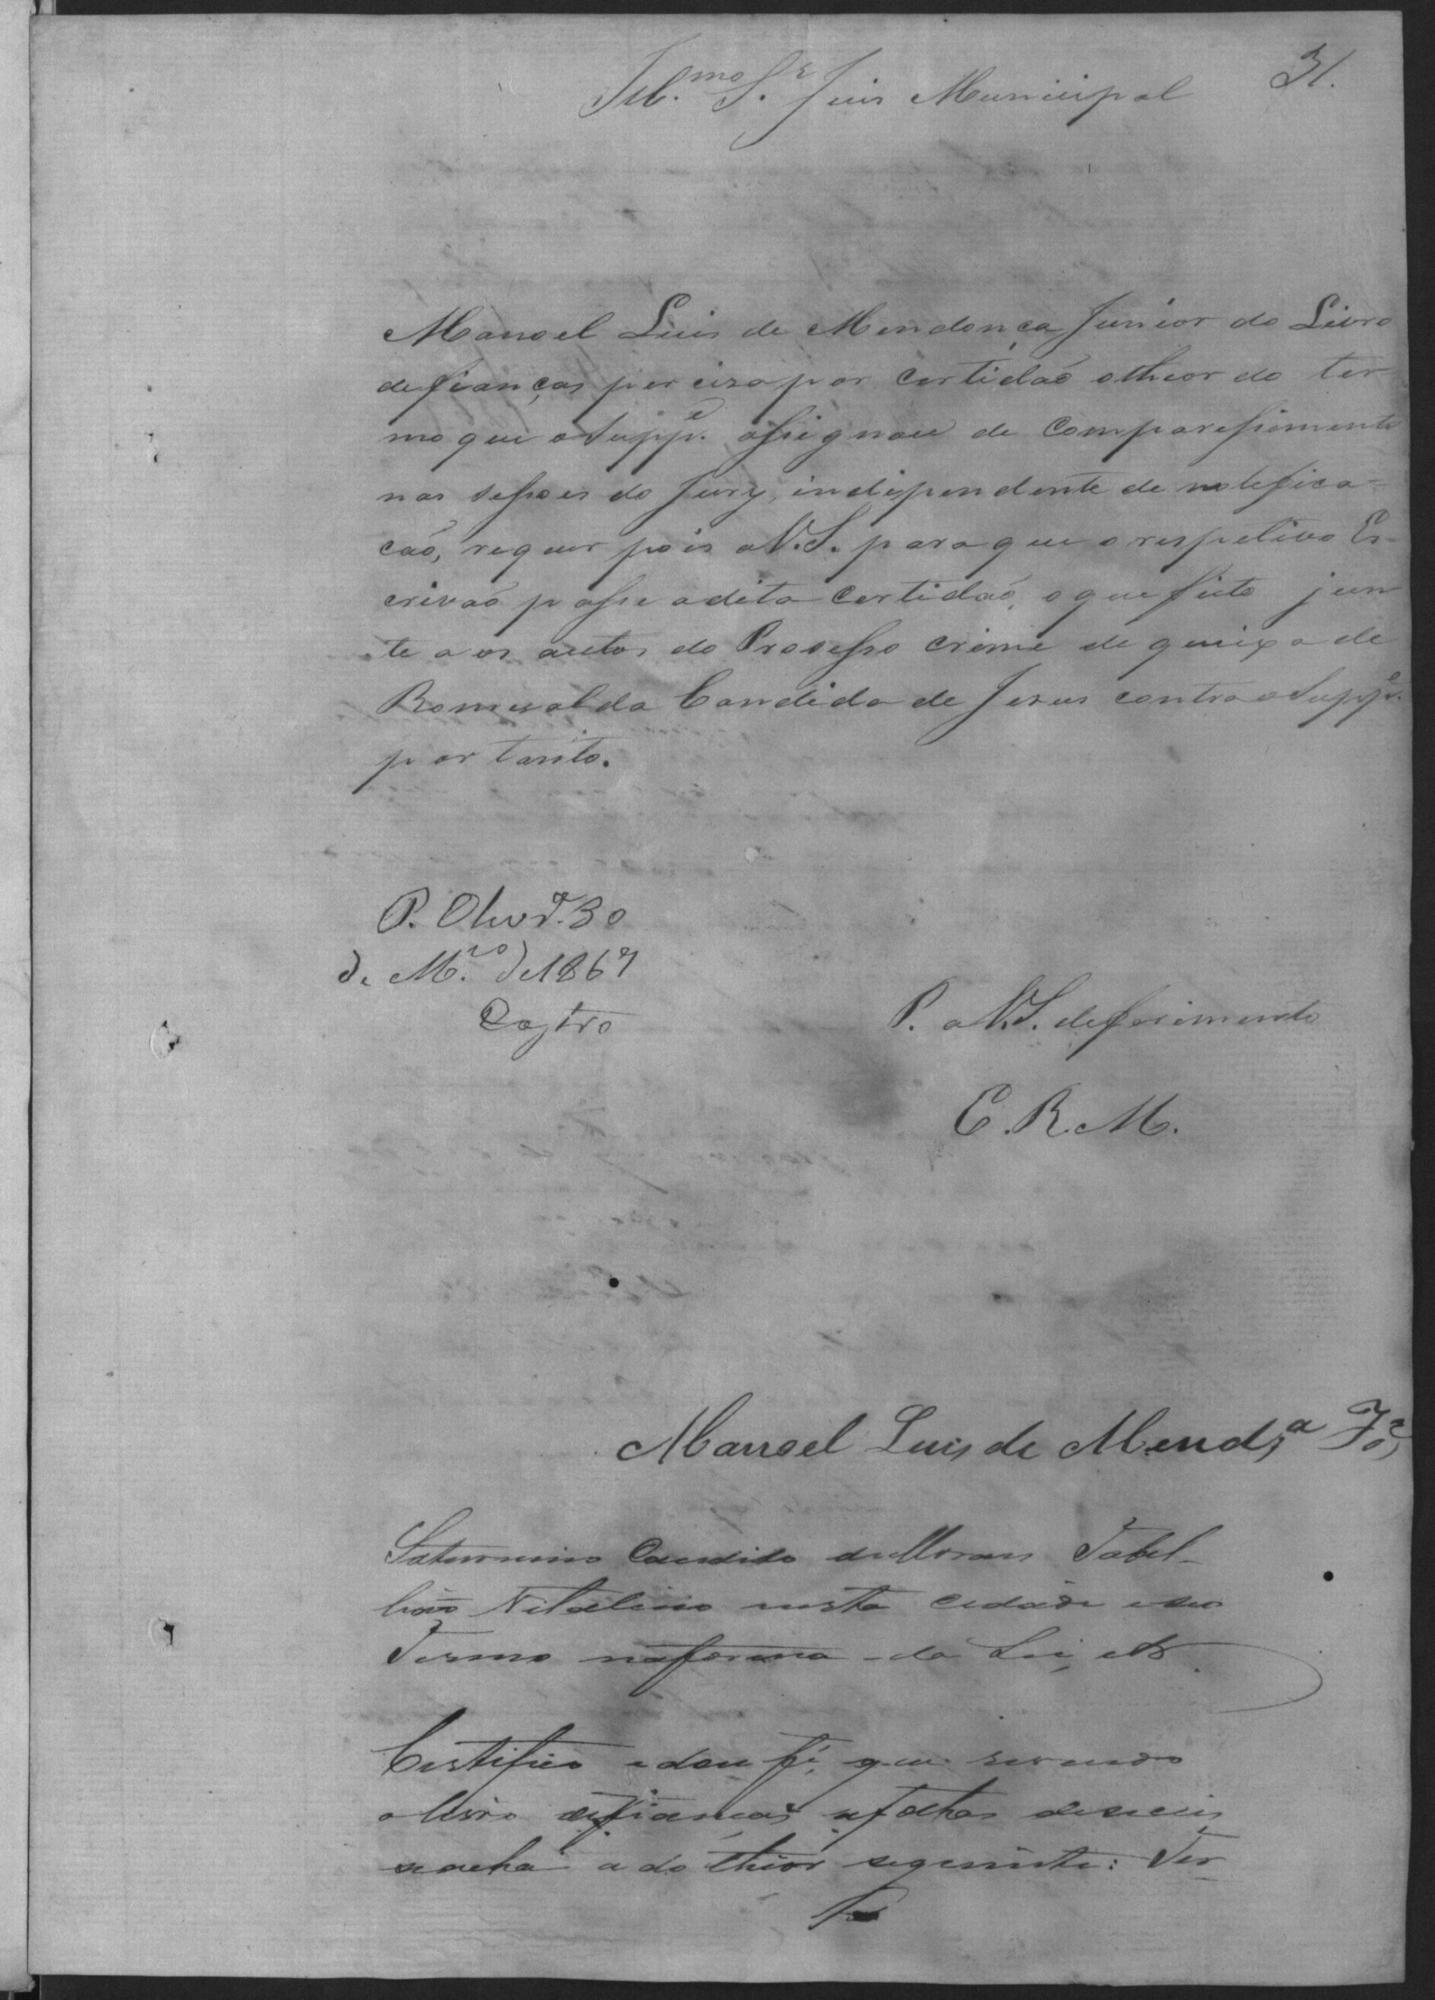 31.
Ill.mo Sr. Juis Municipal
Manoel Luis de Mendonça Junior do Livro
de fianças perciza por certidaõ o theor do ter
mo que o Suppe. assignou de comparessimento
nas sessoes do Jury, indispendente de notefica-
caõ, requer pois a V.S. para que o respetivo Es-
crivaõ passe a dita certidaõ, o que feito jun
te a os autos do Prosesso crime de queixa de
Romualda Candida de Jesus contra o Suppe.
por tanto.
P. Olivr.ª 30
de M.ço de 1867
Castro
P. a V.S. deferimento
E. R. M.
Manoel Luis de Mendça Jor
Saturnino Candido de Moraes Tabel-
liaõ Vitalicio nesta cidade e seo
Termo na forma da Lei, etc
Certifico e dou fé, que revendo
o livro de fianças a folhas deseseis
se acha a do theor seguinte: Ter